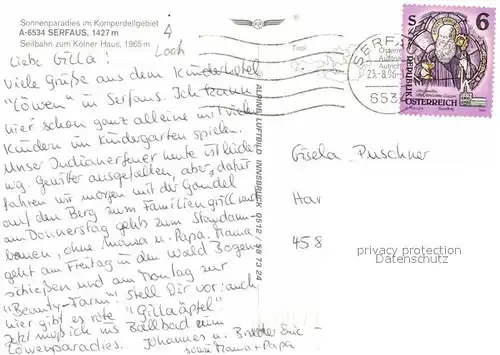 Sonnenparadies im Komperdellgebiet
A-6534 SERFAUS, 1427 m
Seilbahn zum Kölner Haus, 1965 m
Loch
Liebe Gilla!
Viele Grüße aus dem Kinderhotel
"Löwen" in Serfaus. Ich kann
hier schon ganz alleine mit vielen
Kindern im Kindergarten spielen.
Unser Indianerfeuer heute ist leider
wg. Gewitter ausgefallen, aber dafür
fahren wir morgen mit der Gondel
auf den Berg zum Familiengrill und
am Donnerstag gehts zum Staudamm-
bauen, ohne Mama u. Papa. Mama
geht am Freitag in den Wald Bogen-
schießen und am Montag zur
"Beauty-Farm". Stell Dir vor: auch
hier gibt es rote "Gillaäpfel"!
Jetzt muß ich ins Ballbad zum
Löwenparadies. Johannes u. Bruder Eric
sowie Mama + Papa
ALPINE LUFTBILD INNSBRUCK 0512 / 58 73 24
Tirol
SERFAUS
23.-8.96
6534
S 6
REPUBLIK
ÖSTERREICH
Gisela Puschner
Har
458
privacy protection
Datenschutz